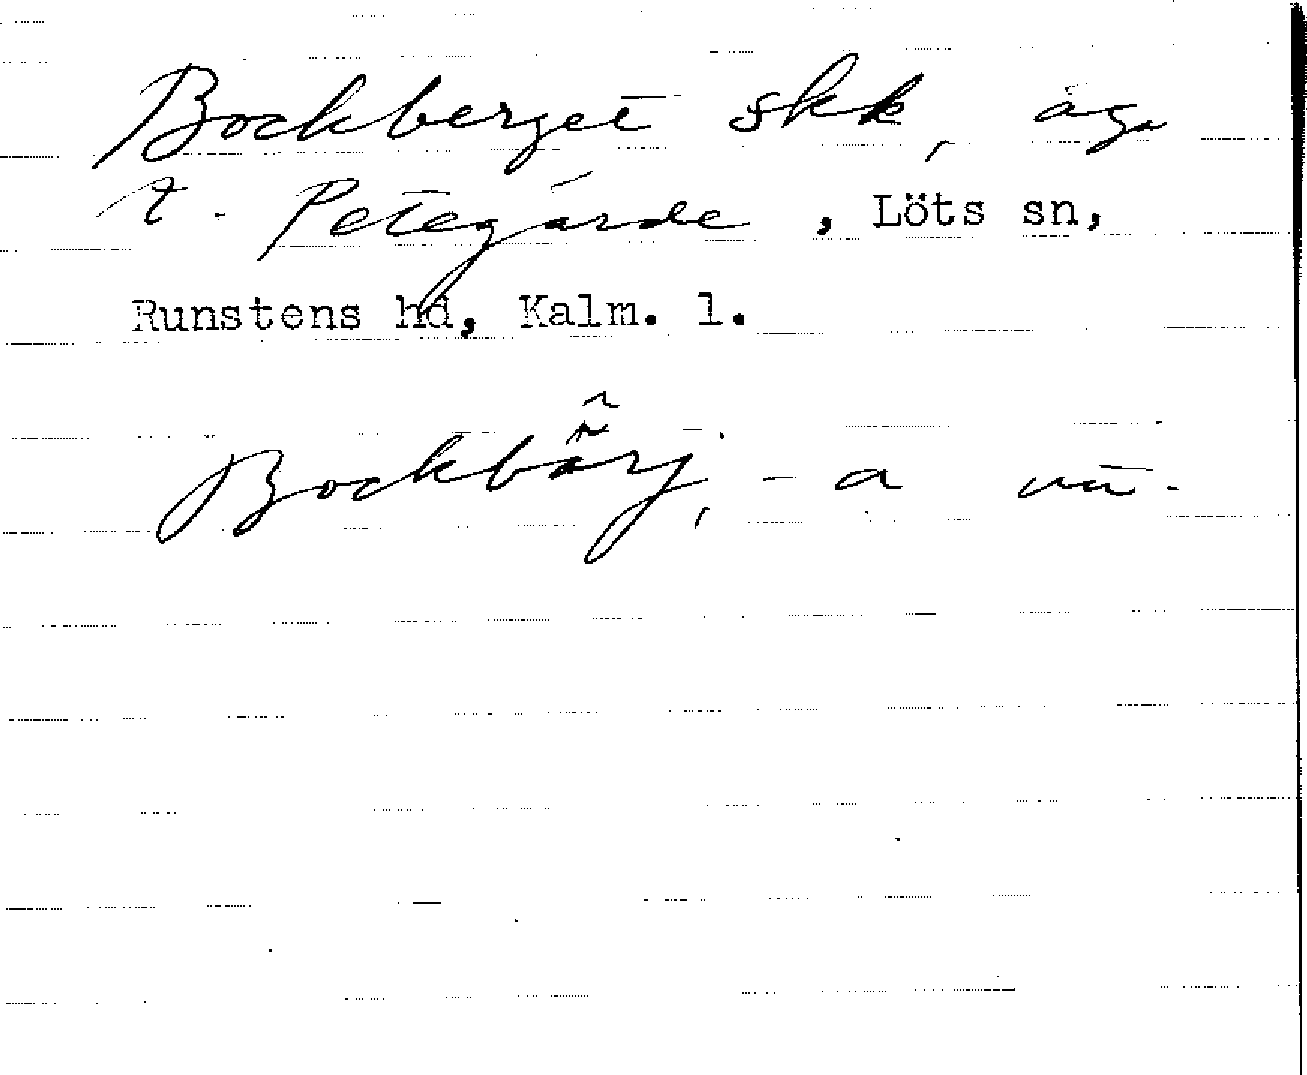 Bockberget skk, äga
t. Petegärde, Löts sn,
Runstens hd, Kalm. l.
Bockbärj, -a